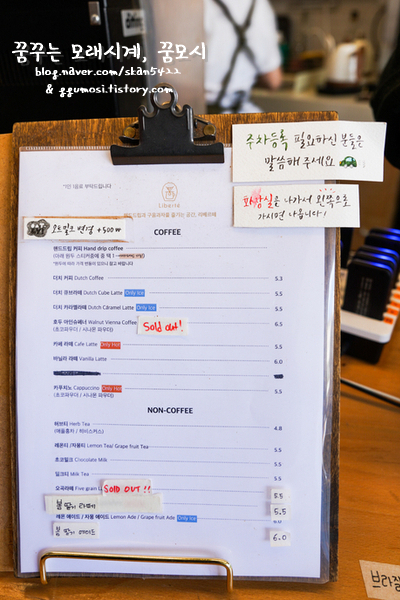 꿈꾸는 모래시계, 꿈모시
blog.naver.com/skan5422
& ggumosi.tistory.com
주차등록 필요하신 분들은
말씀해 주세요
화장실은 나가서 왼쪽으로
가시면 나옵니다!
*1인 1음료 부탁드립니다
Liberté
오트밀크 변경 +500₩
COFFEE
핸드드립 커피 Hand drip coffee
더치 커피 Dutch Coffee 5.3
더치 큐브라떼 Dutch Cube Latte Only Ice 5.5
더치 카라멜라떼 Dutch Caramel Latte Only Ice 5.5
호두 아인슈페너 Walnut Vienna Coffee 6.5
(초코파우더 / 시나몬 파우더)
Sold out!
카페 라떼 Cafe Latte Only Hot 5.5
바닐라 라떼 Vanilla Latte 6.0
카푸치노 Cappuccino Only Hot 5.5
(초코파우더 / 시나몬 파우더)
NON-COFFEE
허브티 Herb Tea 4.8
레몬티/자몽티 Lemon Tea/ Grape fruit Tea 5.5
초코밀크 Chocolate Milk 5.5
밀크티 Milk Tea 5.5
오곡라떼 Five grain L
SOLD OUT!! 5.5
봄 딸기 라떼 5.5
레몬 에이드 / 자몽 에이드 Lemon Ade / Grape fruit Ade Only Ice 6.0
봄 딸기 에이드 6.0
브라질